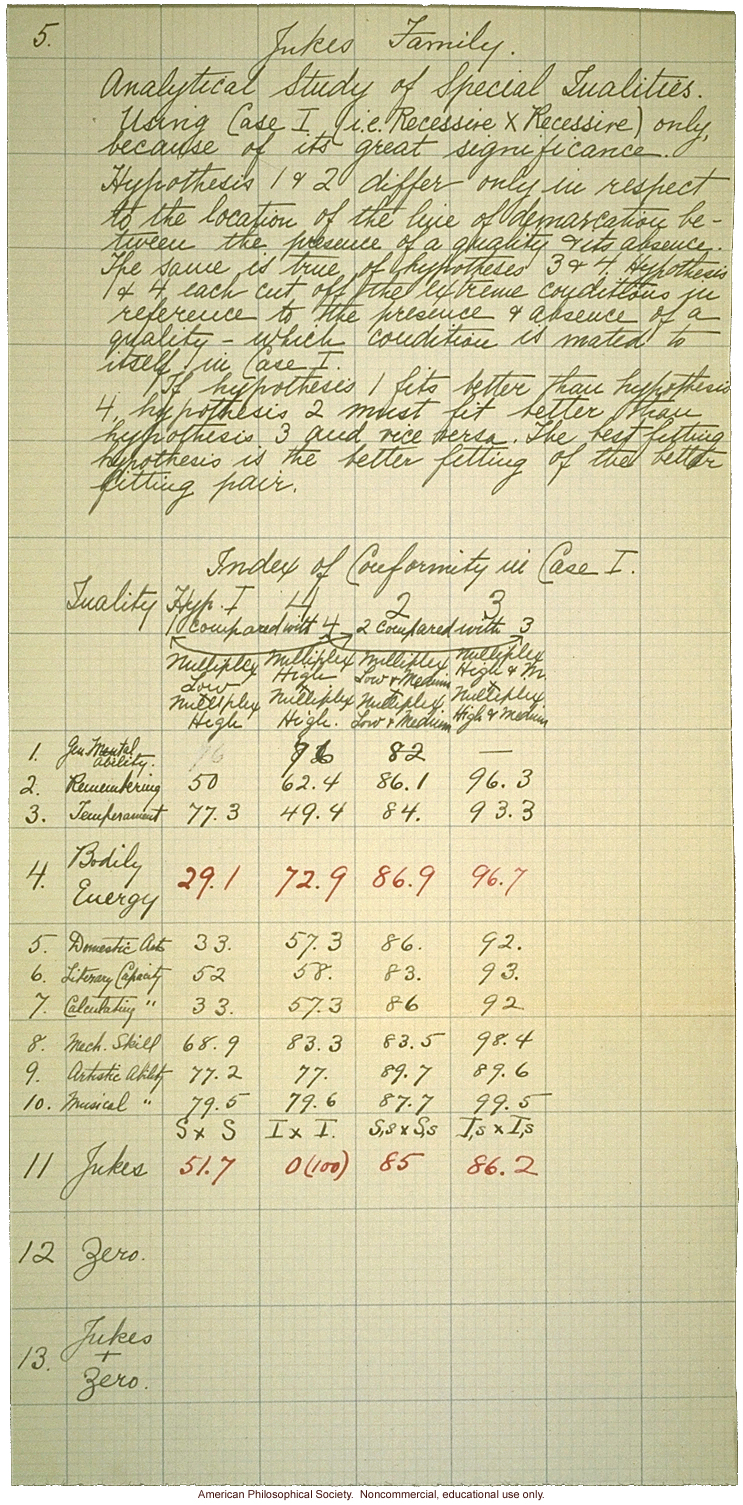 5. Jukes Family.
Analytical Study of Special Qualities.
Using Case I (i.e. Recessive X Recessive) only,
because of its great significance.
Hypothesis 1 & 2 differ only in respect
to the location of the line of demarcation be-
tween the presence of a quality & its absence.
The same is true of hypotheses 3 & 4. Hypothesis
1 & 4 each cut off the extreme conditions in
reference to the presence & absence of a
quality - which condition is mated to
itself in Case I.
If hypothesis 1 fits better than hypothesis
4, hypothesis 2 must fit better than
hypothesis 3 and vice versa. The best fitting
hypothesis is the better fitting of the better
fitting pair.
Index of Conformity in Case I.
Quality Hyp. I 4 2 3
1 compared with 4 2 compared with 3
Nulliplex Nulliplex Nulliplex Nulliplex
Low High Low & Medium High & M.
x x x x
Nulliplex Nulliplex Nulliplex Nulliplex
High High. Low & Medium High & Medium
1. Gen. Mental ability. 82 —
2. Remembering 50 62.4 86.1 96.3
3. Temperament 77.3 49.4 84. 93.3
4. Bodily Energy 29.1 72.9 86.9 96.7
5. Domestic Arts 33. 57.3 86. 92.
6. Literary Capacity 52 58. 83. 93.
7. Calculating " 33. 57.3 86 92
8. Mech. Skill 68.9 83.3 83.5 98.4
9. Artistic Ability 77.2 77. 89.7 89.6
10. Musical " 79.5 79.6 87.7 99.5
S x S I x I. S,s x S,s I,s x I,s
11 Jukes 51.7 0(100) 85 86.2
12 Zero.
13. Jukes
+
Zero.
American Philosophical Society. Noncommercial, educational use only.